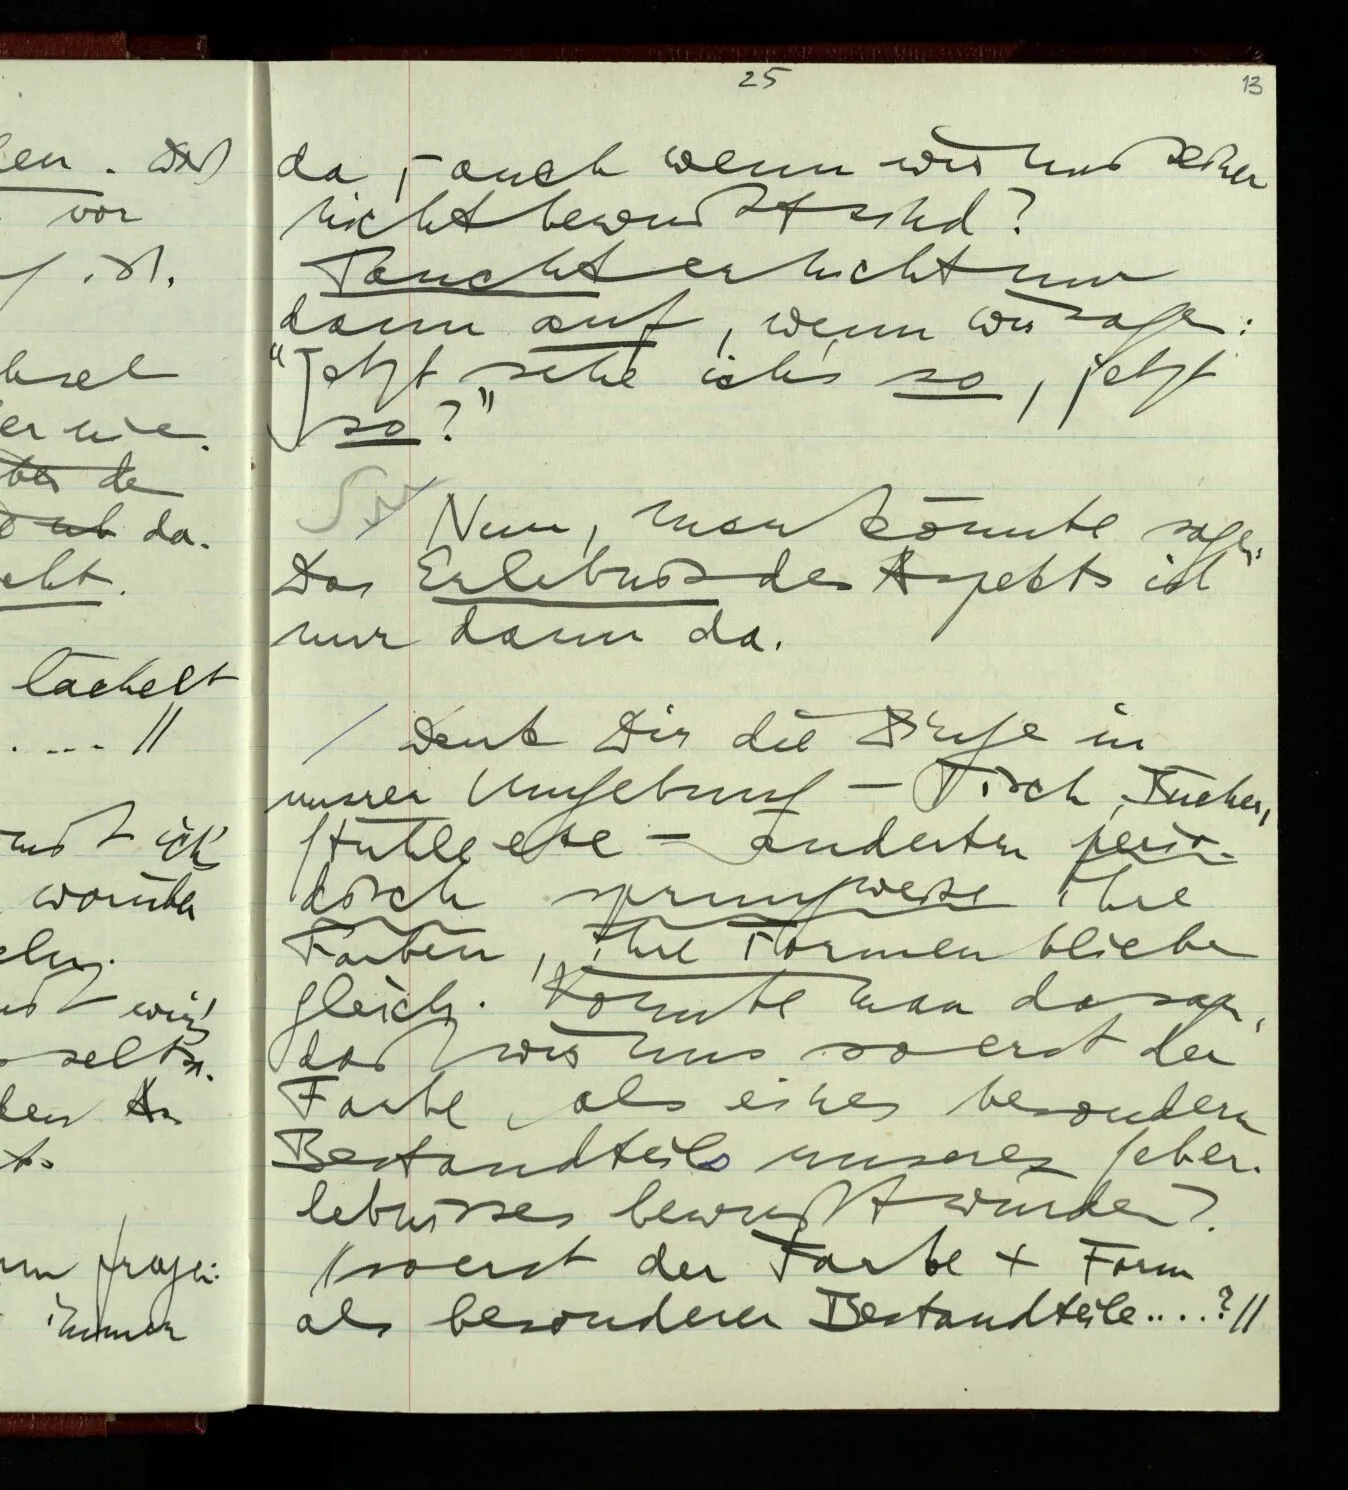 25
13
en. Daß
vor
ist.
hsel
er nie.
da.
eht.
lächelt
.... //
ich
worüber
wir's
selbst.
den
fragen:
immer
da, – auch wenn wir uns seiner
nicht bewußt sind?
Taucht er nicht nur
dann auf, wenn wir sagen:
"Jetzt sehe ich's so, jetzt
so?"
Nun, man könnte sagen:
Das Erlebnis des Aspekts ist
nur dann da.
/ Denk Dir die Dinge in
unsrer Umgebung – Tisch, Bücher,
Stühle, etc – änderten perio-
disch sprungweise ihre
Farben, ihre Formen blieben
gleich. Könnte man da sagen,
daß wir uns so erst der
Farbe, als eines besondern
Bestandteils unseres Seher-
lebnisses bewußt würden?
// so erst der Farbe + Form
als besonderer Bestandteile....?//